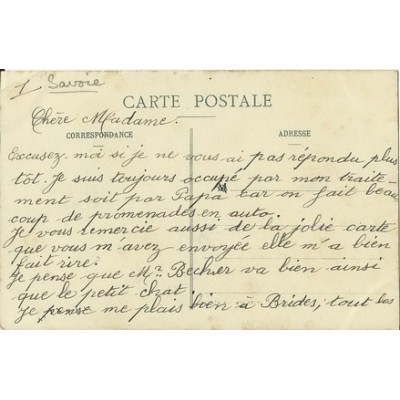 1 Savoie
CARTE POSTALE
Chère Madame.
CORRESPONDANCE
ADRESSE
Excusez-moi si je ne vous ai pas répondu plus
tôt. Je suis toujours occupé par mon traite-
ment soit par Papa car on fait beau
coup de promenades en auto.
Je vous remercie aussi de la jolie carte
que vous m'avez envoyée elle m'a bien
fait rire.
Je pense que Mr. Becher va bien ainsi
que le petit chat.
Je pense me plais bien à Brides, tout les